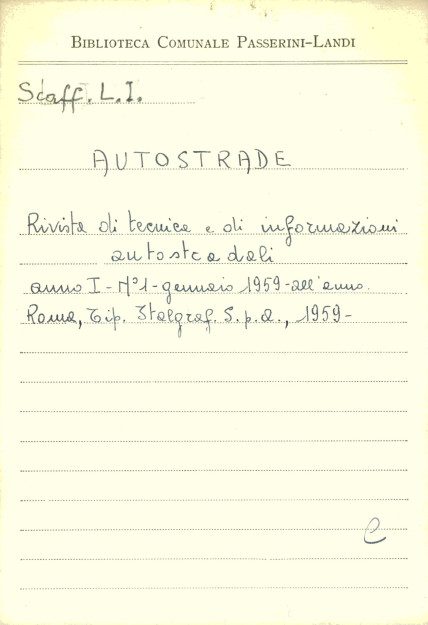 BIBLIOTECA COMUNALE PASSERINI-LANDI
Scaff. L. I.
AUTOSTRADE
Rivista di tecnica e di informazioni
autostradali
anno I - N° 1 - gennaio 1959 - all'anno.
Roma, Tip. Italgraf. S.p.a., 1959 -
C